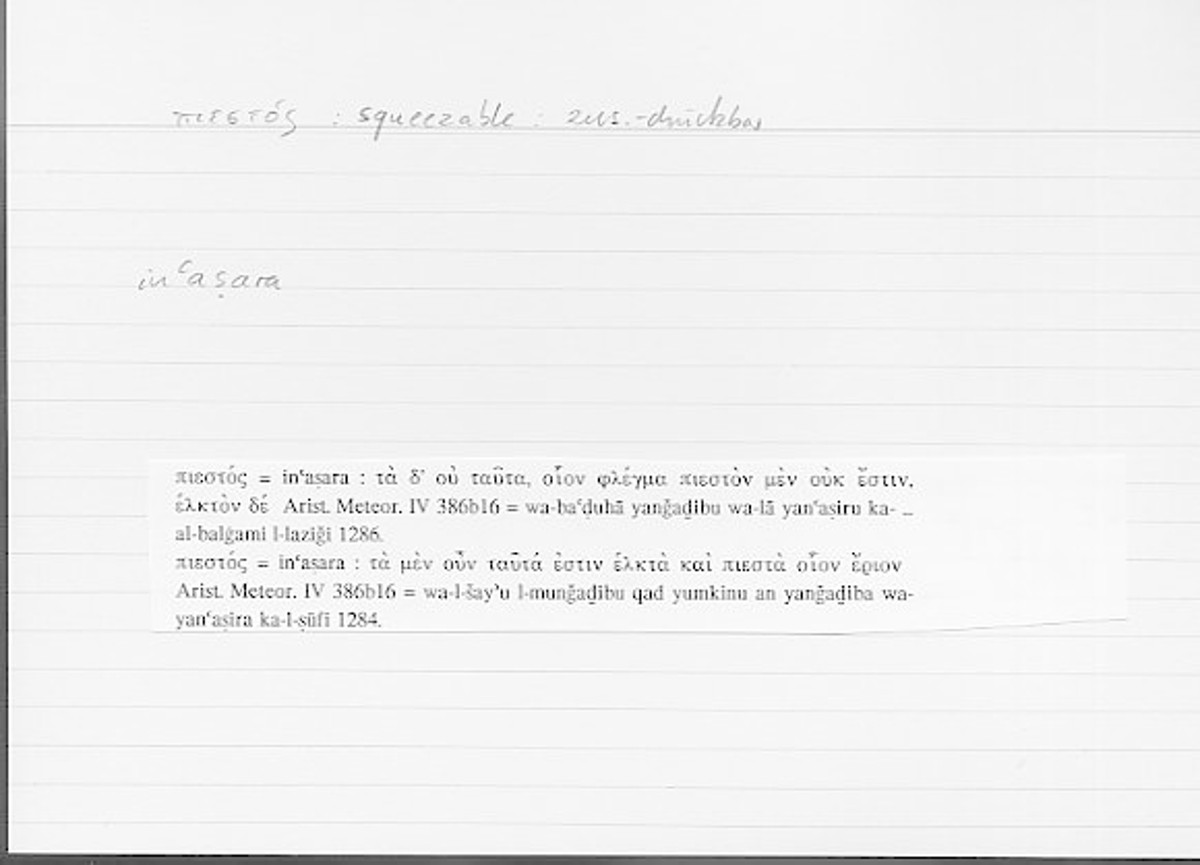 πιεστός : squeezable : zus.-drückbar
inʿaṣara
πιεστός = inʿaṣara : τὰ δ’ οὐ ταῦτα, οἷον φλέγμα πιεστὸν μὲν οὐκ ἔστιν,
ἑλκτὸν δέ Arist. Meteor. IV 386b16 = wa-baʿḍuhā yanǧaḏibu wa-lā yanʿaṣiru ka- _
al-balġami l-laziǧi 1286.
πιεστός = inʿaṣara : τὰ μὲν οὖν ταῦτά ἐστιν ἑλκτὰ καὶ πιεστὰ οἷον ἔριον
Arist. Meteor. IV 386b16 = wa-l-šayʾu l-munǧaḏibu qad yumkinu an yanǧaḏiba wa-
yanʿaṣira ka-l-ṣūfi 1284.